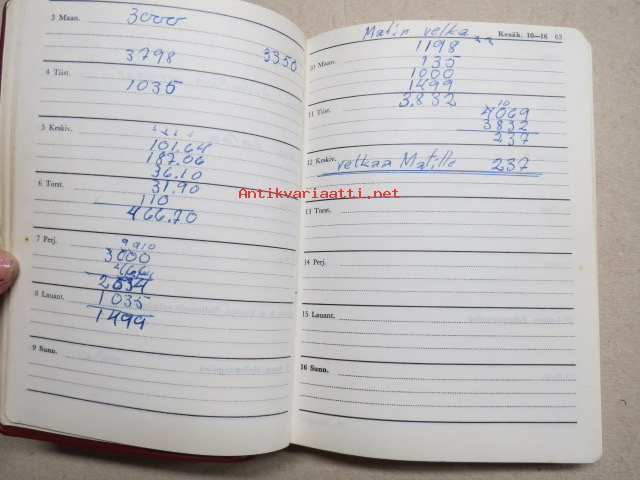 3 Maan. 3000
3798 3350
4 Tiist. 1035
5 Keskiv.
101.64
187.06
36.10
6 Torst. 31.90
110
466.70
7 Perj. 9 9 10
3000
466
2534
8 Lauant. 1035
1499
9 Sunn.
Matin velka Kesäk. 10—16 63
1198
10 Maan. 135
1000
1499
3.832
11 Tiist. 10
4069
3832
237
12 Keskiv. velkaa Matille 237
Antikvariaatti.net
13 Torst.
14 Perj.
15 Lauant.
16 Sunn.